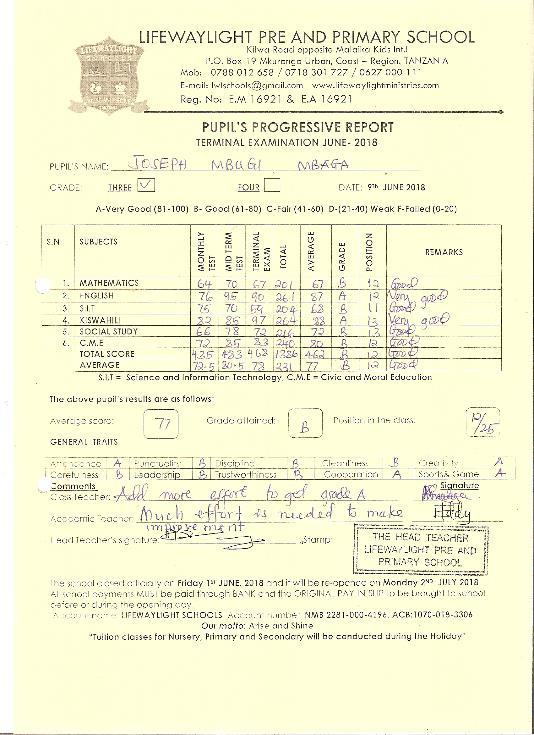 LIFEWAYLIGHT
LIFEWAYLIGHT PRE AND PRIMARY SCHOOL
Kilwa Road opposite Malaika Kids Int.l
P.O. Box 19 Mkuranga Urban, Coast – Region, TANZANIA
Mob: 0788 012 658 / 0718 301 727 / 0627 000 111
E-mail: lwlschools@gmail.com www.lifewaylightministries.com
Reg. No: E.M 16921 & E.A 16921
PUPIL'S PROGRESSIVE REPORT
TERMINAL EXAMINATION JUNE- 2018
PUPIL'S NAME: JOSEPH MBUGI MBAGA
GRADE: THREE ✓ FOUR DATE: 9th JUNE 2018
A-Very Good (81-100) B- Good (61-80) C-Fair (41-60) D-(21-40) Weak F-Failed (0-20)
S.N SUBJECTS MONTHLY TEST MID TERM TEST TERMINAL EXAM TOTAL AVERAGE GRADE POSITION REMARKS
1. MATHEMATICS 64 70 67 201 67 B 12 Good
2. ENGLISH 76 95 90 261 87 A 12 Very good
3. S.I.T 75 70 59 204 68 B 11 Good
4. KISWAHILI 82 85 97 264 88 A 13 Very good
5. SOCIAL STUDY 66 78 72 216 72 B 13 Good
6. C.M.E 72 85 83 240 80 B 12 Good
TOTAL SCORE 435 483 468 1386 462 B 12 Good
AVERAGE 72.5 80.5 78 231 77 B 12 Good
S.I.T = Science and Information Technology, C.M.E = Civic and Moral Education
The above pupil's results are as follows:
Average score: 77 Grade attained: B Position in the class: 12/25
GENERAL TRAITS
Attendance A Punctuality B Discipline B Cleanliness B Creativity A
Carefulness B Leadership B Trustworthiness B Cooperation A Sports& Game A
Comments Signature
Class Teacher: Add more effort to get grade A
Academic Teacher: Much effort is needed to make
improvement
Lead Teacher's signature: Stamp:
THE HEAD TEACHER
LIFEWAYLIGHT PRE AND
PRIMARY SCHOOL
The school closed officially on Friday 1st JUNE, 2018 and it will be re-opened on Monday 2ND JULY 2018
All school payments MUST be paid through BANK and the ORIGINAL PAY IN SLIP to be brought to school
before or during the opening day.
Account name: LIFEWAYLIGHT SCHOOLS. Account number: NMB 2281-000-4196, ACB:1070-018-3306
Our motto: Arise and Shine
"Tuition classes for Nursery, Primary and Secondary will be conducted during the Holiday"